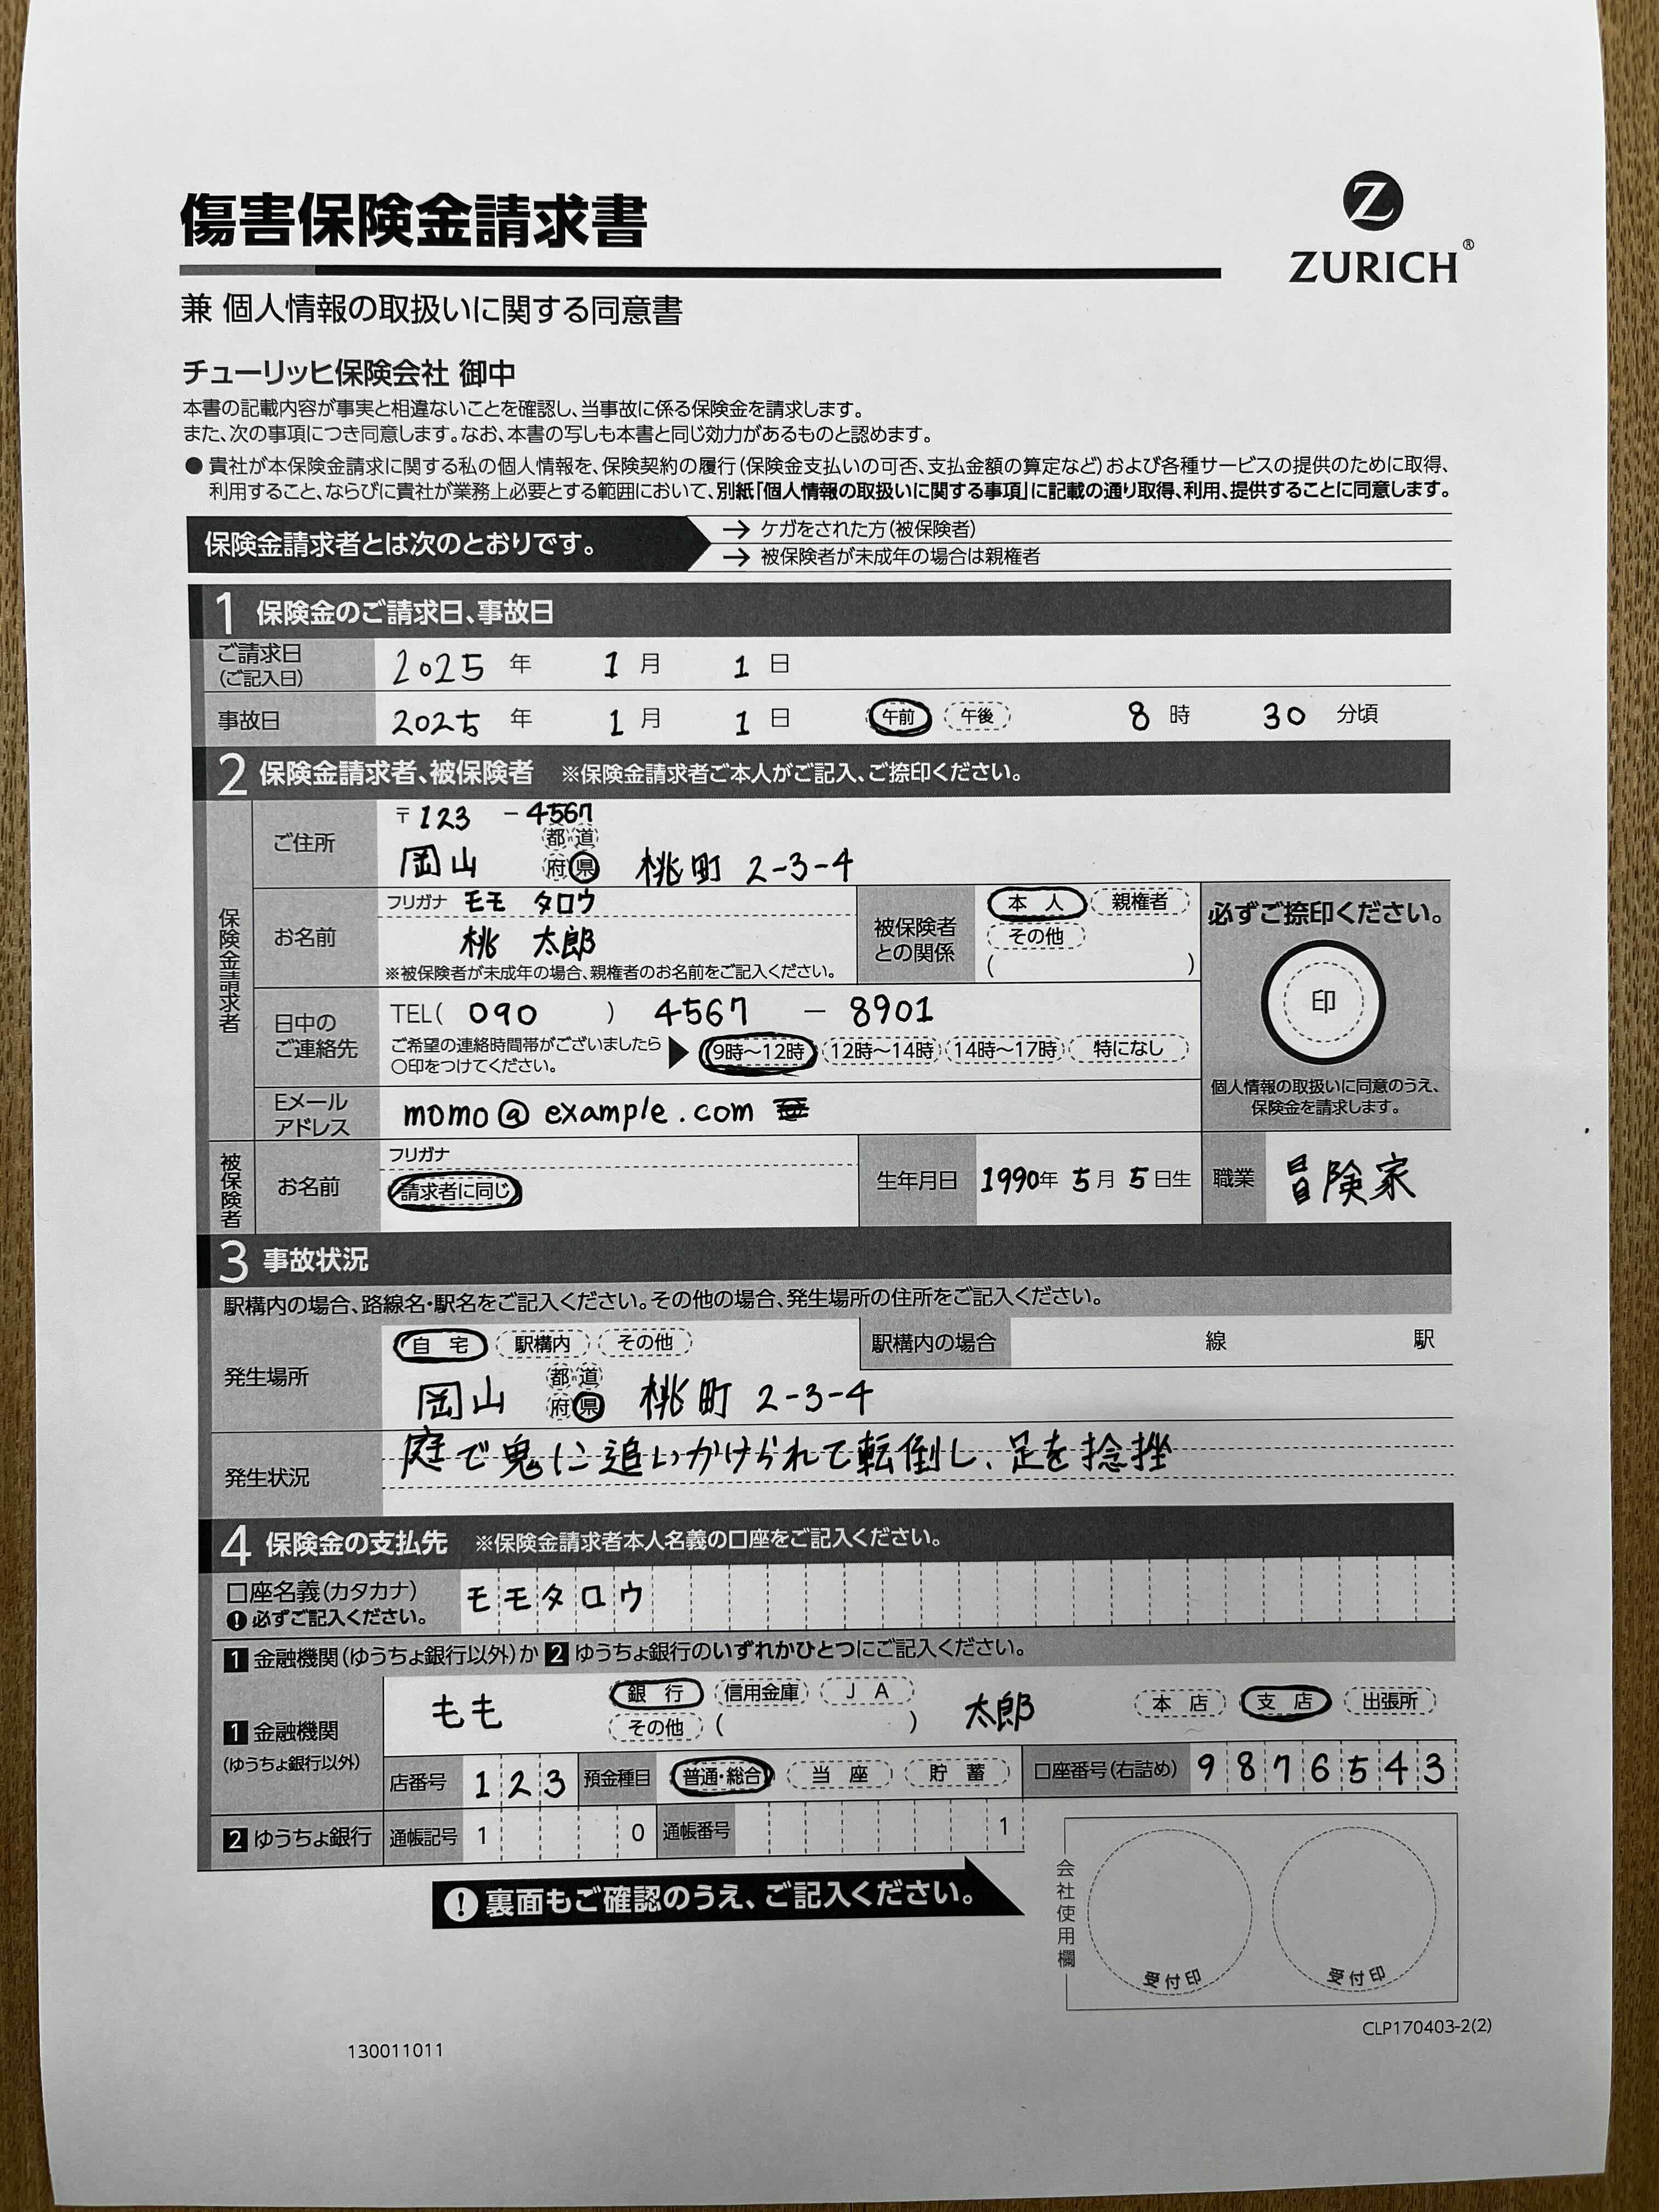 傷害保険金請求書
Z
ZURICH®
兼 個人情報の取扱いに関する同意書
チューリッヒ保険会社 御中
本書の記載内容が事実と相違ないことを確認し、当事故に係る保険金を請求します。
また、次の事項につき同意します。なお、本書の写しも本書と同じ効力があるものと認めます。
● 貴社が本保険金請求に関する私の個人情報を、保険契約の履行(保険金支払いの可否、支払金額の算定など)および各種サービスの提供のために取得、
利用すること、ならびに貴社が業務上必要とする範囲において、別紙「個人情報の取扱いに関する事項」に記載の通り取得、利用、提供することに同意します。
保険金請求者とは次のとおりです。
→ ケガをされた方(被保険者)
→ 被保険者が未成年の場合は親権者
1 保険金のご請求日、事故日
ご請求日
(ご記入日)
2025 年 1 月 1 日
事故日 2025 年 1 月 1 日 午前 午後 8 時 30 分頃
2 保険金請求者、被保険者 ※保険金請求者ご本人がご記入、ご捺印ください。
保険金請求者
ご住所
〒123 - 4567
都 道
岡山 府 県 桃町 2-3-4
お名前
フリガナ モモ タロウ
桃 太郎
※被保険者が未成年の場合、親権者のお名前をご記入ください。
被保険者
との関係
本 人 親権者
その他
( )
必ずご捺印ください。
印
個人情報の取扱いに同意のうえ、
保険金を請求します。
日中の
ご連絡先
TEL( 090 ) 4567 - 8901
ご希望の連絡時間帯がございましたら
○印をつけてください。
▶ 9時〜12時 12時〜14時 14時〜17時 特になし
Eメール
アドレス
momo@example.com
被保険者
お名前
フリガナ
請求者に同じ
生年月日 1990年 5月 5日生
職業 冒険家
3 事故状況
駅構内の場合、路線名・駅名をご記入ください。その他の場合、発生場所の住所をご記入ください。
発生場所
自 宅 駅構内 その他
駅構内の場合 線 駅
都 道
岡山 府 県 桃町 2-3-4
発生状況
庭で鬼に追いかけられて転倒し、足を捻挫
4 保険金の支払先 ※保険金請求者本人名義の口座をご記入ください。
口座名義(カタカナ)
! 必ずご記入ください。
モモタロウ
1 金融機関(ゆうちょ銀行以外)か 2 ゆうちょ銀行のいずれかひとつにご記入ください。
1 金融機関
(ゆうちょ銀行以外)
もも 銀 行 信用金庫 J A
その他 ( )
太郎 本 店 支 店 出張所
店番号 123 預金種目 普通・総合 当 座 貯 蓄 口座番号(右詰め) 9876543
2 ゆうちょ銀行 通帳記号 1 0 通帳番号 1
! 裏面もご確認のうえ、ご記入ください。
会社使用欄
受付印
受付印
CLP170403-2(2)
130011011